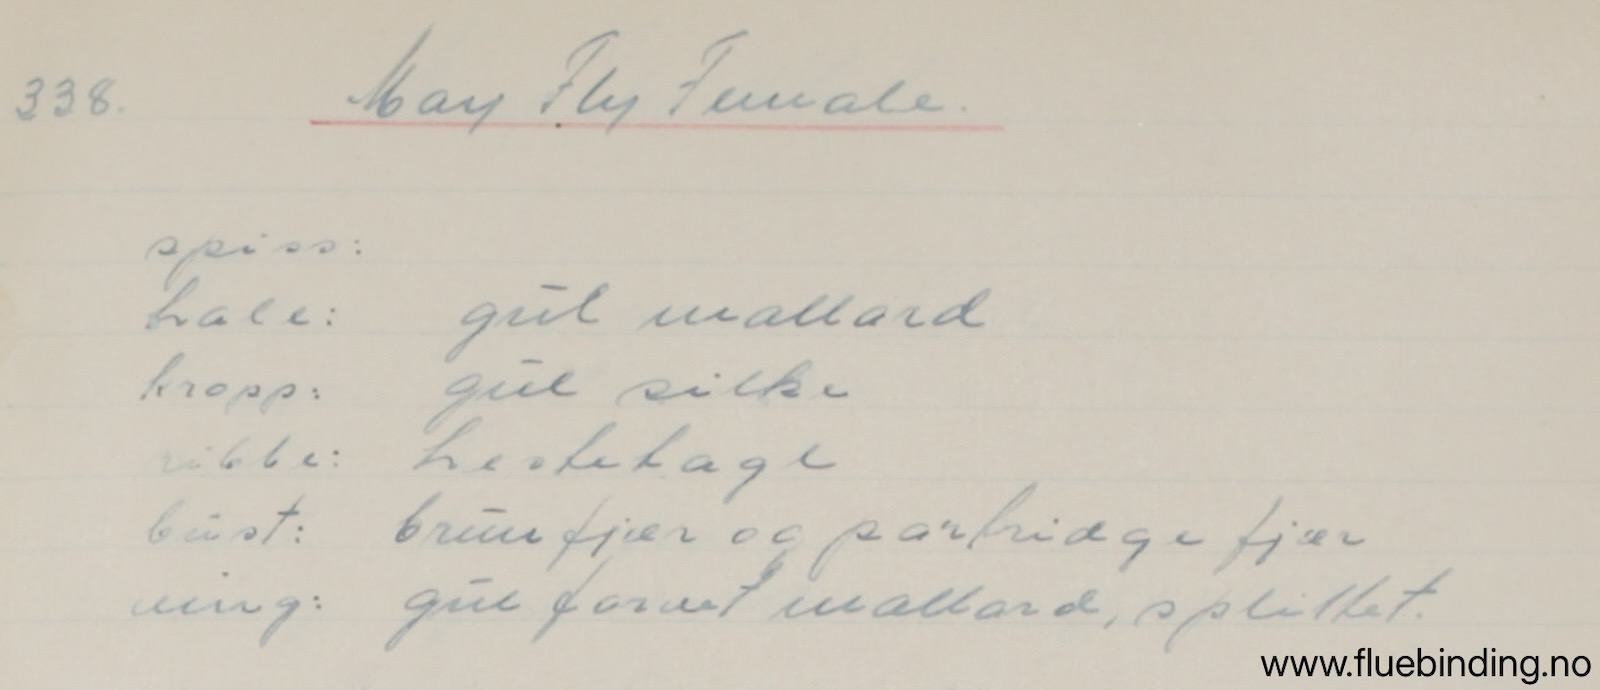 338. May Fly Female.
spiss:
hale: gūl mallard
kropp: gūl silke
ribbe: hestetagl
būst: brūn fjær og partridge fjær
ving: gūl farvet mallard, splittet.
www.fluebinding.no